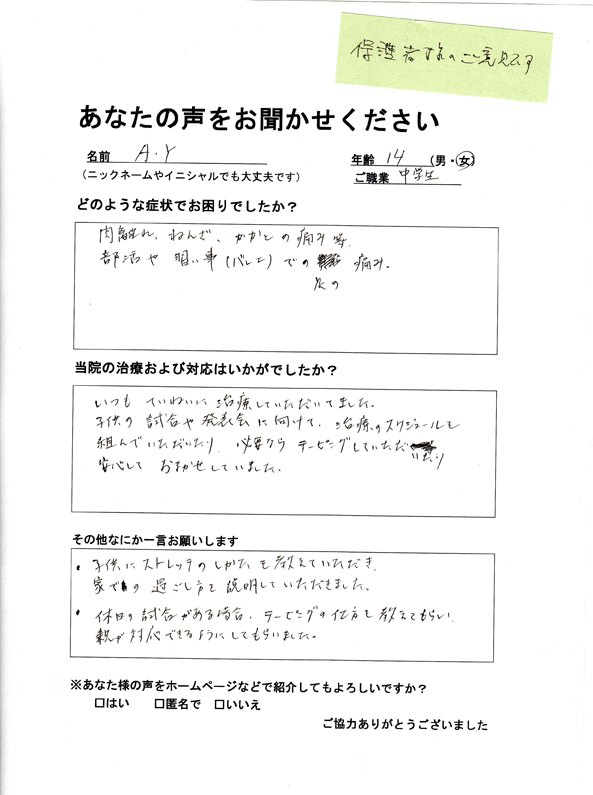 保護者様のご意見です
あなたの声をお聞かせください
名前 A.Y 年齢 14 (男・女)
(ニックネームやイニシャルでも大丈夫です) ご職業 中学生
どのような症状でお困りでしたか?
肉離れ、ねんざ、かかとの痛み等、
部活や習い事(バレエ)での 痛み.
次の
当院の治療および対応はいかがでしたか?
いつも ていねいに治療していただいてました。
子供の試合や発表会に向けて、治療のスケジュールを
組んでいただいたり、必要なら テーピングしていただ
いたり
安心して おまかせしていました。
その他なにか一言お願いします
・子供にストレッチのしかたを教えていただき、
家での 過ごし方を説明していただきました。
・休日の試合がある場合、テーピングの仕方を教えてもらい
親が対応できるようにしてもらいました。
※あなた様の声をホームページなどで紹介してもよろしいですか?
□はい □匿名で □いいえ
ご協力ありがとうございました